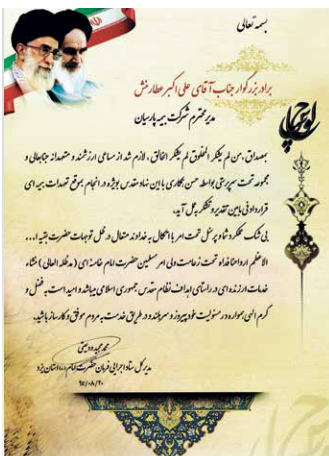 بسمه تعالی
برادر بزرگوار جناب آقای علی اکبر عطارمنش
مدیر محترم شرکت بیمه پارسیان
لوح سپاس
بمصداق، من لم یشکر المخلوق لم یشکر الخالق، لازم شد از مساعی ارزشمند و متعهدانه جنابعالی و
مجموعه تحت سرپرستی بواسطه حسن همکاری با این نهاد مقدس بویژه در انجام بموقع تعهدات بیمه ای
قراردادی مابین تقدیر و تشکر بعمل آید.
بی شک عملکرد شما و پرسنل تحت امر با اتکال به خداوند متعال در ظل توجهات حضرت بقیه ا...
الاعظم ارواحنا فداه تحت زعامت ولی امر مسلمین حضرت امام خامنه ای (مدظله العالی) منشاء
خدمات ارزنده ای در راستای اهداف نظام مقدس جمهوری اسلامی میباشد و امید است به فضل و
کرم الهی همواره در مسئولیت خود پیروز و سربلند و در طریق خدمت به مردم موفق و کارساز باشید.
مدیرکل ستاد اجرایی فرمان حضرت امام (ره) استان یزد